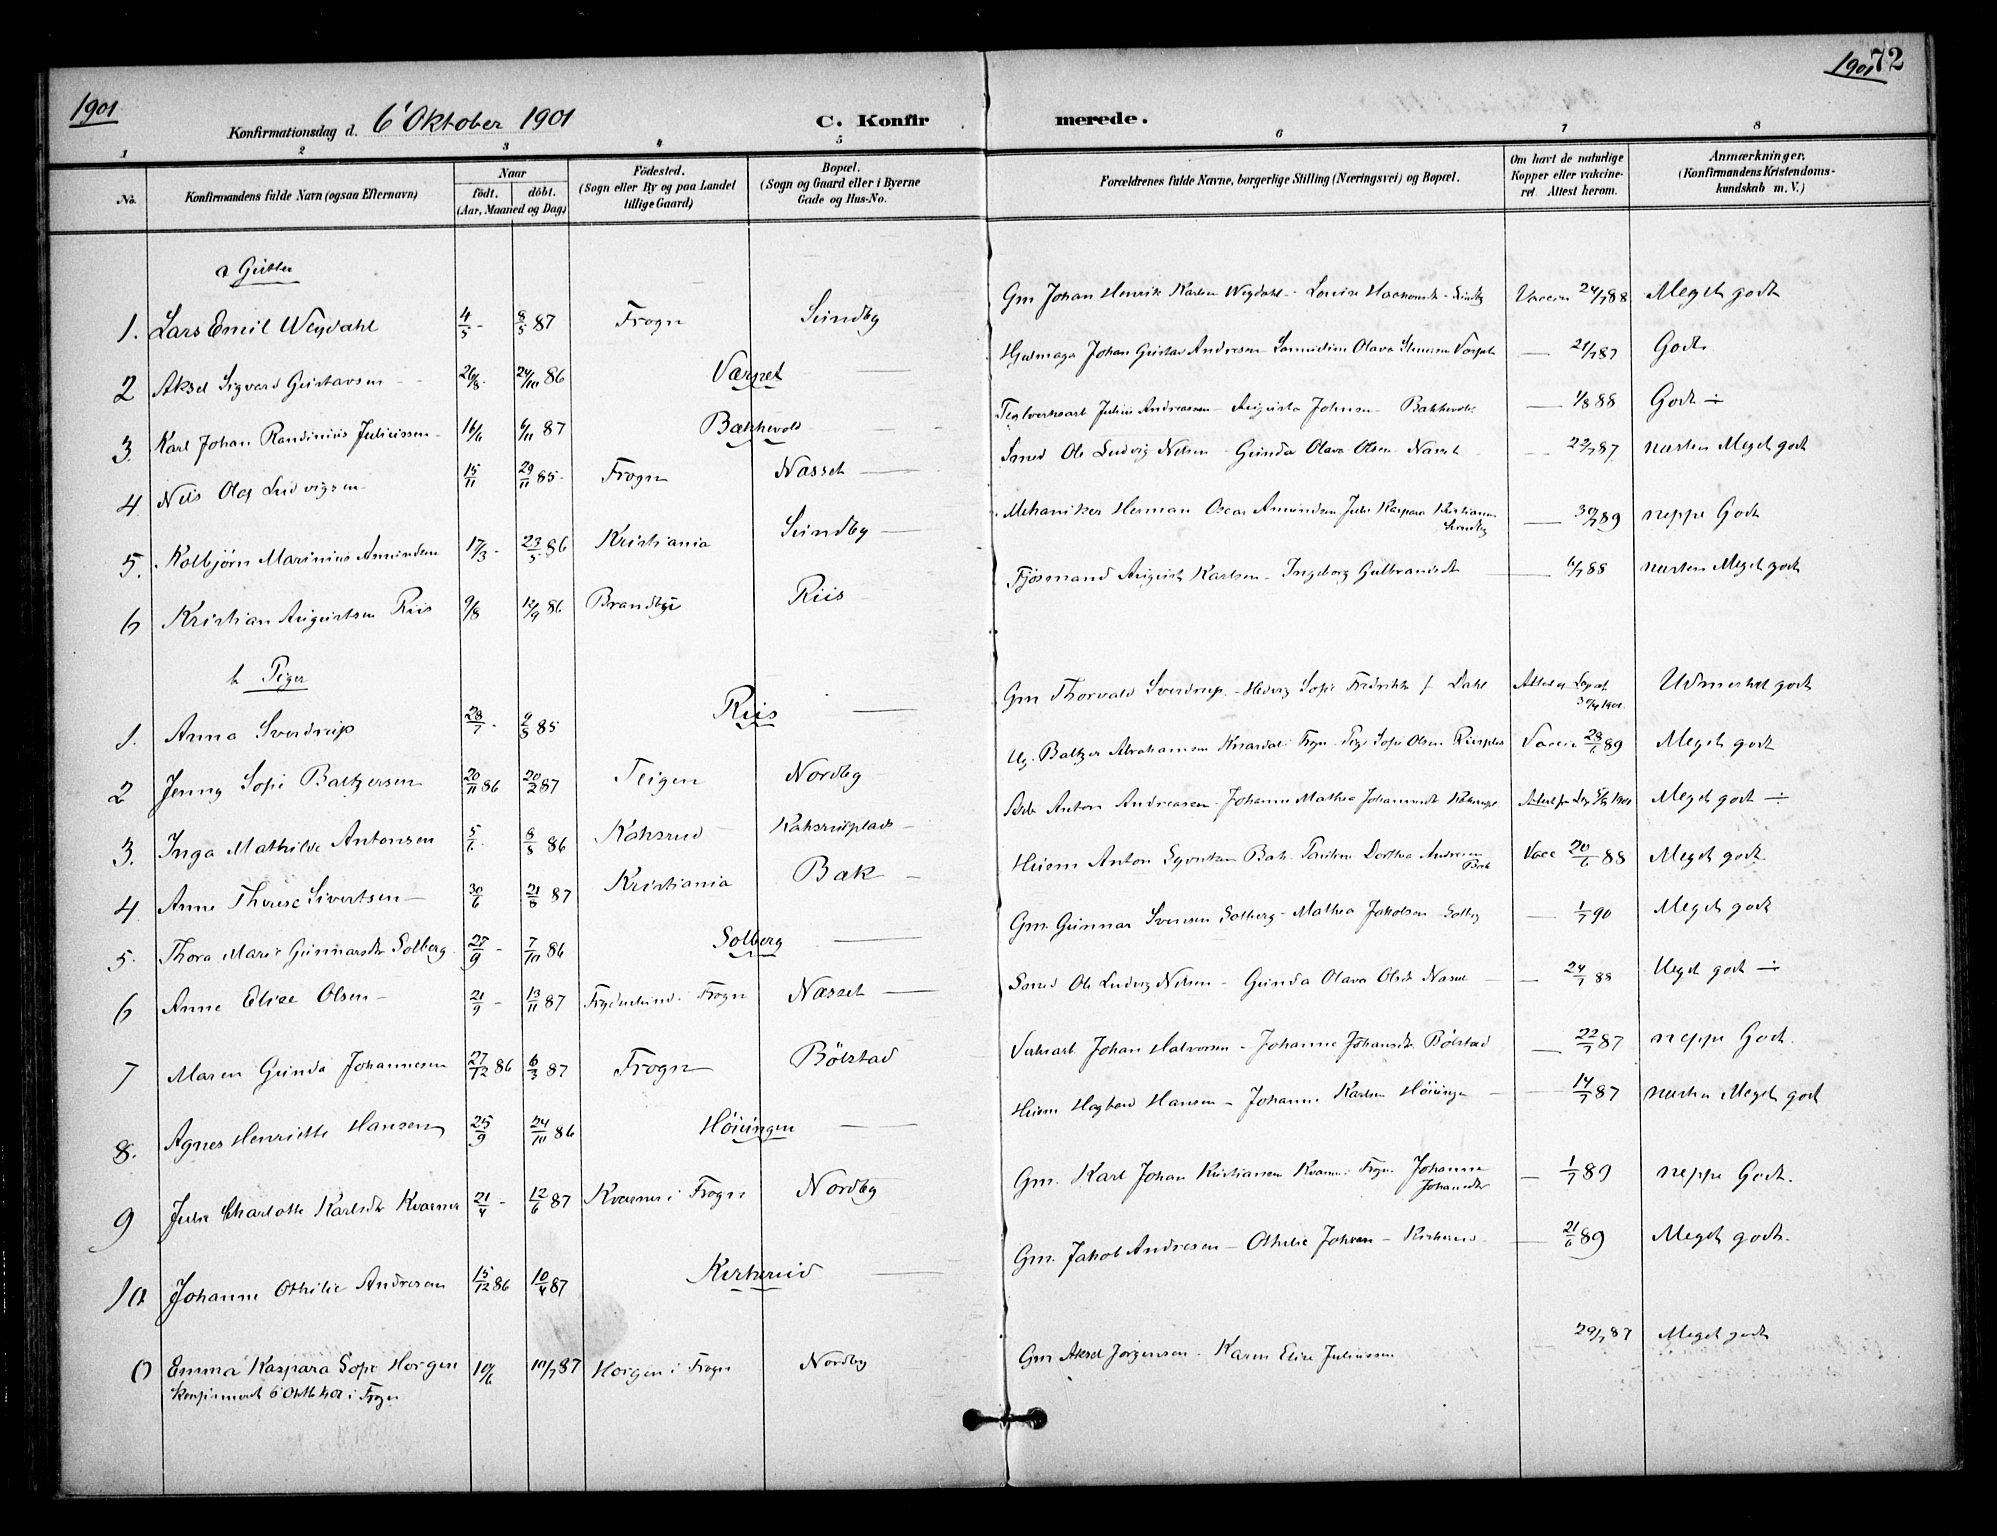 1901
Konfirmationsdag d. 6' Oktober 1901
C. Konfir
merede.
1901
72
1 2 3 4 5 6 7 8
No. Konfirmandens fulde Navn (ogsaa Efternavn) Naar födt. döbt. (Aar, Maaned og Dag) Födested. (Sogn eller By og paa Landet tillige Gaard) Bopæl. (Sogn og Gaard eller i Byerne Gade og Hus-No. Forældrenes fulde Navne, borgerlige Stilling (Næringsvei) og Bopæl. Om havt de naturlige Kopper eller vakcineret. Attest herom. Anmærkninger. (Konfirmandens Kristendomskundskab m. V.)
a Gutter
1. Lars Emil Weydahl 4/5 - 8/5 87 Frogn Sundby Gm Johan Henrik Karlsen Weydahl - Lovise Vaccin 24/7 88 Meget godt
2 Aksel Sigvard Gustavsen 26/8 - 24/10 86 Værpet — Johan Gustav Andresen Olava — 21/7 87 Godt
3. Karl Johan Randinius Juliussen 16/6 6/11 87 Bakkevold — Teglverksarb Julius Andreassen - Augusta Johnsen Bakkevold — 1/8 88 Godt ÷
4 Nils Olaf Ludvigsen 15/11 29/11 85 Frogn Nasset — Smed Ole Ludvig Nilsen - Gunda Olava Olsen Nasset — 22/7 87 næsten Meget godt
5. Kolbjörn Marinius Amundsen 17/3 - 23/5 86 Kristiania Sundby — Mekaniker Herman Oscar Amundsen Julie Kaspara Kristiansen Sundby — 30/7 89 neppe Godt
6 Kristian Augustsen Riis 9/8 12/9 86 Brandbu Riis Fjösmand August Karlsen - Ingeborg Gulbrandsdt — 6/7 88 næsten Meget godt
b Piger
1. Anna Sverdrup 28/7 - 85 Riis — Gm Thorvald Sverdrup - Hedvig Sofie Fredrikke f. Dahl Attest 1901 Udmerket godt
2 Jenny Sofie Baltzersen 20/11 86 20/2 87 Teigen Nordby Ug. Baltzer Abrahamsen Knardal i Frogn - Pige Sofie Olsen Vaccin 28/ 89 Meget godt
3. Inga Mathilde Antonsen 5/6 - 8/8 86 Kahsrud Kahsrudplads — Anton Andreasen - Johanne Mathea Johannesdt 1901 Meget godt ÷
4 Anne Therese Sivertsen — 30/6 21/8 87 Kristiania Bak — Anton Bak Dorthea Andresen Bak Vacc 20/6 88 Meget godt
5. Thora Marie Gunnarsdtr Solberg 25/9 - 7/10 86 Solberg — Gm. Gunnar Svensen Solberg - Mathea Jakobsen Solberg — 1/7 90 Meget godt
6 Anne Elise Olsen - 21/9 - 13/11 87 i Frogn Næsset — Smed Ole Ludvig Nilsen - Gunda Olava Olsdt Næsset — 24/7 88 Meget godt ÷
7 Maren Gunda Johannesen 27/12 86 6/3 87 Frogn Bölstad Johan Halvorsen - Johanne Johansdt. Bölstad — 22/7 87 neppe Godt.
8. Agnes Henriette Hansen 25/9 24/10 86 Höiungen — Hagbard Hansen - Johanne Karlsen Höiungen — 14/7 87 næsten Meget godt
9 Julie Charlotte Karlsdtr Kværner 21/4 - 12/6 87 Kværner i Frogn Nordby Gm. Karl Johan Kristiansen Kværner i Frogn Johanne Johansdtr — 1/7 89 neppe Godt.
10 Johanne Othilie Andresen 15/12 86 10/4 87 Kirkerud — Gm. Jakob Andresen - Othilie Johnsen - Kirkerud — 21/6 89 Meget godt.
0 Emma Kaspara Sofie Horgen 10/6 10/7 87 Horgen i Frogn Nordby Gm Aksel Jörgensen - Karen Elise Juliussen 29/7 87 Meget godt
Konfirmeret 6 Oktb 1901 i Frogn